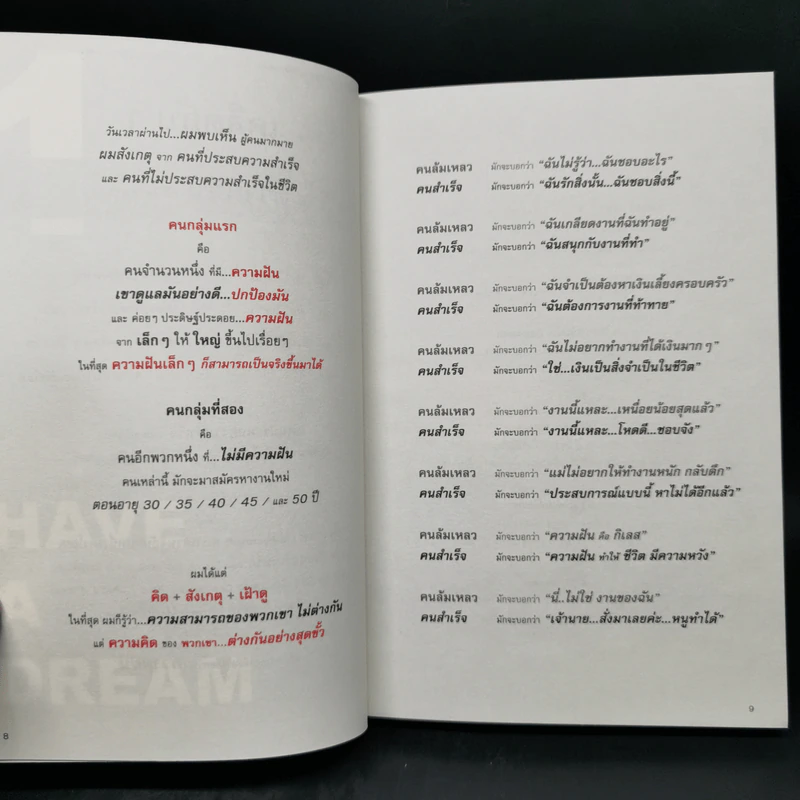 วันเวลาผ่านไป...ผมพบเห็น ผู้คนมากมาย
ผมสังเกตุ จาก คนที่ประสบความสำเร็จ
และ คนที่ไม่ประสบความสำเร็จในชีวิต
คนกลุ่มแรก
คือ
คนจำนวนหนึ่ง ที่มี...ความฝัน
เขาดูแลมันอย่างดี...ปกป้องมัน
และ ค่อยๆ ประดิษฐ์ประดอย...ความฝัน
จาก เล็กๆ ให้ ใหญ่ ขึ้นไปเรื่อยๆ
ในที่สุด ความฝันเล็กๆ ก็สามารถเป็นจริงขึ้นมาได้
คนกลุ่มที่สอง
คือ
คนอีกพวกหนึ่ง ที่...ไม่มีความฝัน
คนเหล่านี้ มักจะมาสมัครหางานใหม่
ตอนอายุ 30 / 35 / 40 / 45 / และ 50 ปี
ผมได้แต่
คิด + สังเกตุ + เฝ้าดู
ในที่สุด ผมก็รู้ว่า...ความสามารถของพวกเขา ไม่ต่างกัน
แต่ ความคิด ของ พวกเขา...ต่างกันอย่างสุดขั้ว
HAVE
A
DREAM
8
คนล้มเหลว มักจะบอกว่า “ฉันไม่รู้ว่า...ฉันชอบอะไร”
คนสำเร็จ มักจะบอกว่า “ฉันรักสิ่งนั้น...ฉันชอบสิ่งนี้”
คนล้มเหลว มักจะบอกว่า “ฉันเกลียดงานที่ฉันทำอยู่”
คนสำเร็จ มักจะบอกว่า “ฉันสนุกกับงานที่ทำ”
คนล้มเหลว มักจะบอกว่า “ฉันจำเป็นต้องหาเงินเลี้ยงครอบครัว”
คนสำเร็จ มักจะบอกว่า “ฉันต้องการงานที่ท้าทาย”
คนล้มเหลว มักจะบอกว่า “ฉันไม่อยากทำงานที่ได้เงินมากๆ”
คนสำเร็จ มักจะบอกว่า “ใช่...เงินเป็นสิ่งจำเป็นในชีวิต”
คนล้มเหลว มักจะบอกว่า “งานนี้แหละ...เหนื่อยน้อยสุดแล้ว”
คนสำเร็จ มักจะบอกว่า “งานนี้แหละ...โหดดี...ชอบจัง”
คนล้มเหลว มักจะบอกว่า “แม่ไม่อยากให้ทำงานหนัก กลับดึก”
คนสำเร็จ มักจะบอกว่า “ประสบการณ์แบบนี้ หาไม่ได้อีกแล้ว”
คนล้มเหลว มักจะบอกว่า “ความฝัน คือ กิเลส”
คนสำเร็จ มักจะบอกว่า “ความฝัน ทำให้ ชีวิต มีความหวัง”
คนล้มเหลว มักจะบอกว่า “นี่..ไม่ใช่ งานของฉัน”
คนสำเร็จ มักจะบอกว่า “เจ้านาย...สั่งมาเลยค่ะ...หนูทำได้”
9